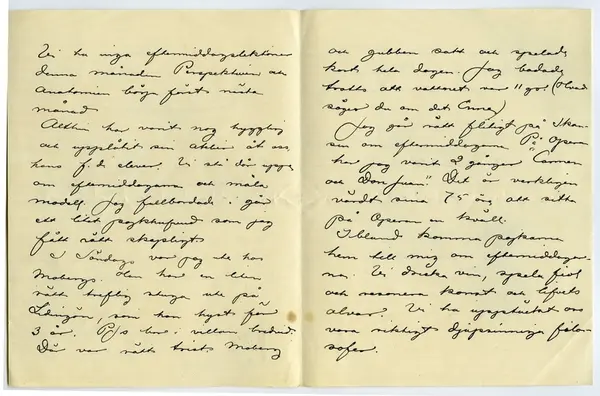 Vi ha inga eftermiddagslektioner
denna månaden Perspektiven och
Anatomien börja först nästa
månad
Althin har varit nog hygglig
och upplåtit sin atelier åt oss,
hans f.d. elever. Vi stå där uppe
om eftermiddagarna och måla
modell. Jag fullbordade i går
ett litet pojkhufvud som jag
fått rätt skapligt
I Söndags var jag ute hos
Mobergs. Han har en liten
rätt treflig stuga ute på
Lidingön, som han hyrt för
3 år. P/s bor i villan bredvid.
Där var rätt trist, Moberg
och gubben satt och spelade
kort hela dagen. Jag badade
trotts att vattnet var 11 gr! (Hvad
säger du om det
Jag går rätt flitigt på Skan-
sen om eftermiddagarna På Operan
har jag varit 2 gånger "Carmen
och Don Juan". Det är verkligen
värdt sina 75 öre att sitta
på Operan en kväll.
Ibland komma pojkarna
hem till mig om eftermiddagar-
na. Vi dricka vin, spela fiol
och resonera konst och lifvets
alvar. Vi ha uppstuckat oss
vara riktigt djupsinniga filo-
sofer.